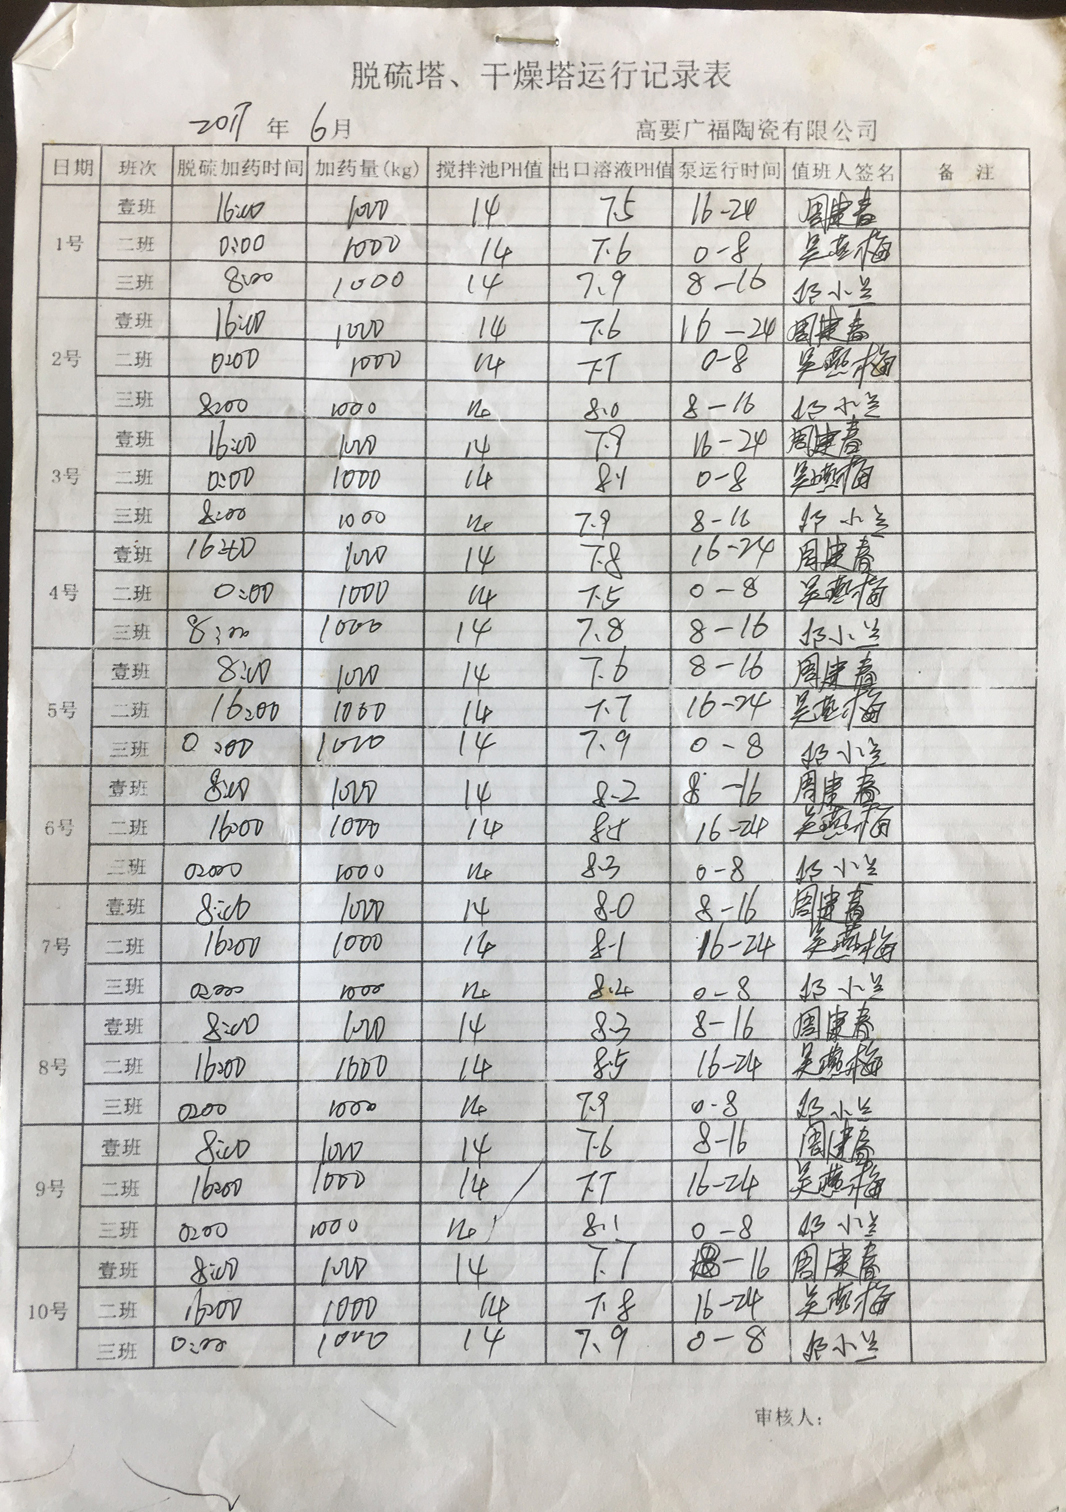 脱硫塔、干燥塔运行记录表
2017 年 6月 高要广福陶瓷有限公司
日期 班次 脱硫加药时间 加药量(kg) 搅拌池PH值 出口溶液PH值 泵运行时间 值班人签名 备 注
1号 壹班 16:00 1000 14 7.5 16-24 周建春
二班 0:00 1000 14 7.6 0-8 吴燕梅
三班 8:00 1000 14 7.9 8-16 小兰
2号 壹班 16:00 1000 14 7.6 16-24 周建春
二班 0:00 1000 14 7.7 0-8 吴燕梅
三班 8:00 1000 14 8.0 8-16 小兰
3号 壹班 16:00 1000 14 7.9 16-24 周建春
二班 0:00 1000 14 8.1 0-8 吴燕梅
三班 8:00 1000 14 7.9 8-16 小兰
4号 壹班 16:00 1000 14 7.8 16-24 周建春
二班 0:00 1000 14 7.5 0-8 吴燕梅
三班 8:00 1000 14 7.8 8-16 小兰
5号 壹班 8:00 1000 14 7.6 8-16 周建春
二班 16:00 1000 14 7.7 16-24 吴燕梅
三班 0:00 1000 14 7.9 0-8 小兰
6号 壹班 8:00 1000 14 8.2 8-16 周建春
二班 16:00 1000 14 16-24 吴燕梅
三班 0:00 1000 14 8.3 0-8 小兰
7号 壹班 8:00 1000 14 8.0 8-16 周建春
二班 16:00 1000 14 8.1 16-24 吴燕梅
三班 0:00 1000 14 8.2 0-8 小兰
8号 壹班 8:00 1000 14 8.3 8-16 周建春
二班 16:00 1000 14 8.5 16-24 吴燕梅
三班 0:00 1000 14 7.9 0-8 小兰
9号 壹班 8:00 1000 14 7.6 8-16 周建春
二班 16:00 1000 14 7.7 16-24 吴燕梅
三班 0:00 1000 14 8.1 0-8 小兰
10号 壹班 8:00 1000 14 7.7 8-16 周建春
二班 16:00 1000 14 7.8 16-24 吴燕梅
三班 0:00 1000 14 7.9 0-8 小兰
审核人: